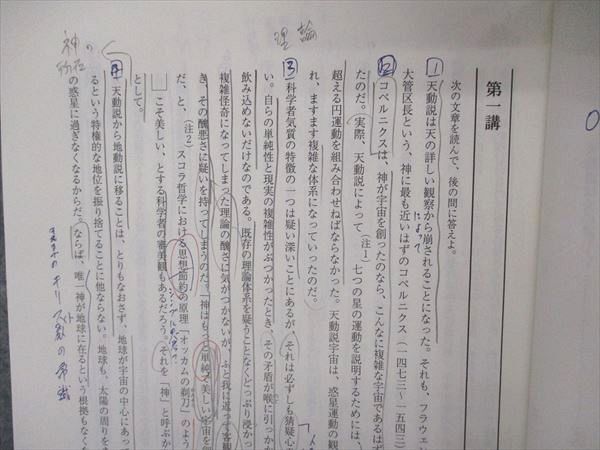 理論
第一講
次の文章を読んで、後の問に答えよ。
1 天動説は天の詳しい観察から崩されることになった。それも、フラウェン
によって
大管区長という、神に最も近いはずのコペルニクス(一四七三〜一五四三)
2 コペルニクスは、神が宇宙を創ったのなら、こんなに複雑な宇宙であるはず
たのだ。実際、天動説によって(注1)七つの星の運動を説明するためには、
超える円運動を組み合わせねばならなかった。天動説宇宙は、惑星運動の観
れ、ますます複雑な体系になっていったのだ。
3 科学者気質の特徴の一つは疑い深いことにあるが、それは必ずしも猜疑心
い。自らの単純性と現実の複雑性がぶつかったとき、その矛盾が喉に引っか
飲み込めないだけなのである。既存の理論体系を疑うことなくどっぷり浸かっ
複雑怪奇になってしまった理論の醜さに気がつかないが、ふと我に返って客観
き、その醜悪さに疑いを持ってしまうのだ。「神はもっと単純で美しい宇宙を創
だ、と、(注2)スコラ哲学における思想節約の原理「オッカムの剃刀」のよう
こそ美しい、とする科学者の審美観もあるだろう。それを「神」と呼ぶか
として。
4 天動説から地動説に移ることは、とりもなおさず、地球が宇宙の中心にあっ
るという特権的な地位を振り捨てることに他ならない。地球も、太陽の周りをま
の惑星に過ぎなくなるからだ。ならば、唯一神が地球に在るという根拠もなく
神の
キリスト教の